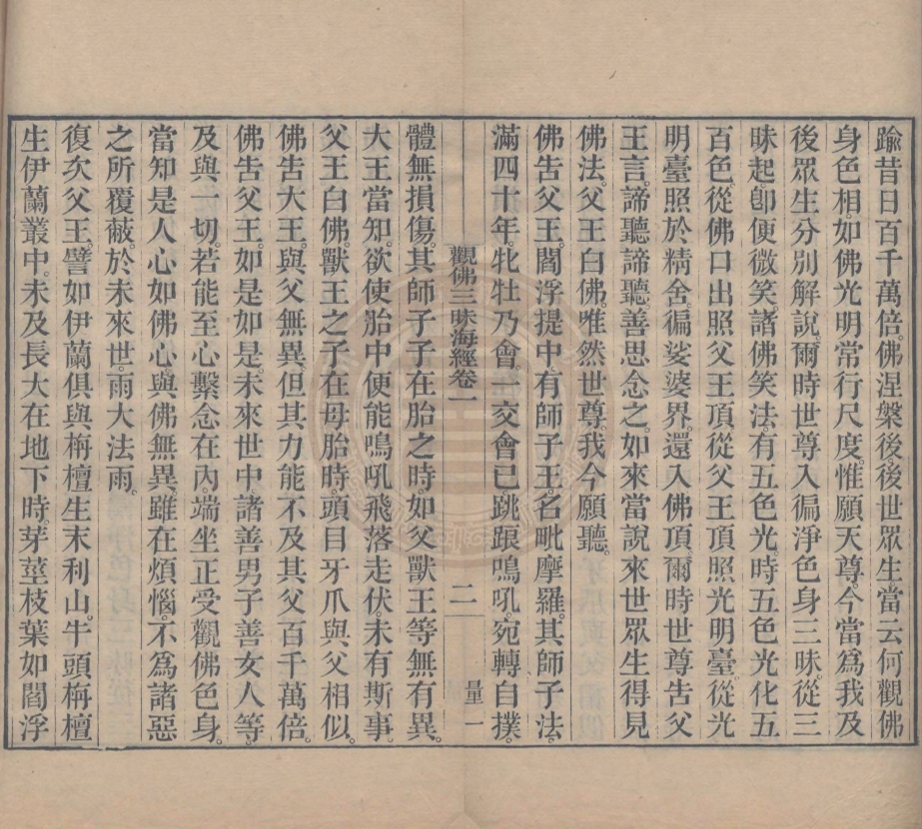 踰昔日百千萬倍。佛涅槃後。後世眾生當云何觀佛
身色相。如佛光明常行尺度。惟願天尊。今當爲我及
後眾生分別解說。爾時世尊入徧淨色身三昧。從三
昧起。卽便微笑。諸佛笑法。有五色光。時五色光化五
百色。從佛口出照父王頂。從父王頂照光明臺。從光
明臺照於精舍。徧娑婆界。還入佛頂。爾時世尊告父
王言。諦聽諦聽。善思念之。如來當說來世眾生得見
佛法。父王白佛。唯然世尊。我今願聽。
佛告父王。閻浮提中。有師子王。名毗摩羅。其師子法。
滿四十年。牝牡乃會。一交會已。跳踉鳴吼。宛轉自撲。
觀佛三昧海經卷一 二 量一
體無損傷。其師子子在胎之時。如父獸王等無有異。
大王當知。欲使胎中便能鳴吼飛落走伏。未有斯事
父王白佛。獸王之子在母胎時。頭目牙爪與父相似。
佛告大王。與父無異。但其力能不及其父百千萬倍。
佛告父王。如是如是。未來世中諸善男子善女人等。
及與一切。若能至心繫念在內。端坐正受觀佛色身。
當知是人心如佛心。與佛無異。雖在煩惱。不爲諸惡
之所覆蔽。於未來世。雨大法雨。
復次父王。譬如伊蘭俱與栴檀生末利山。牛頭栴檀
生伊蘭叢中。未及長大在地下時。芽莖枝葉如閻浮